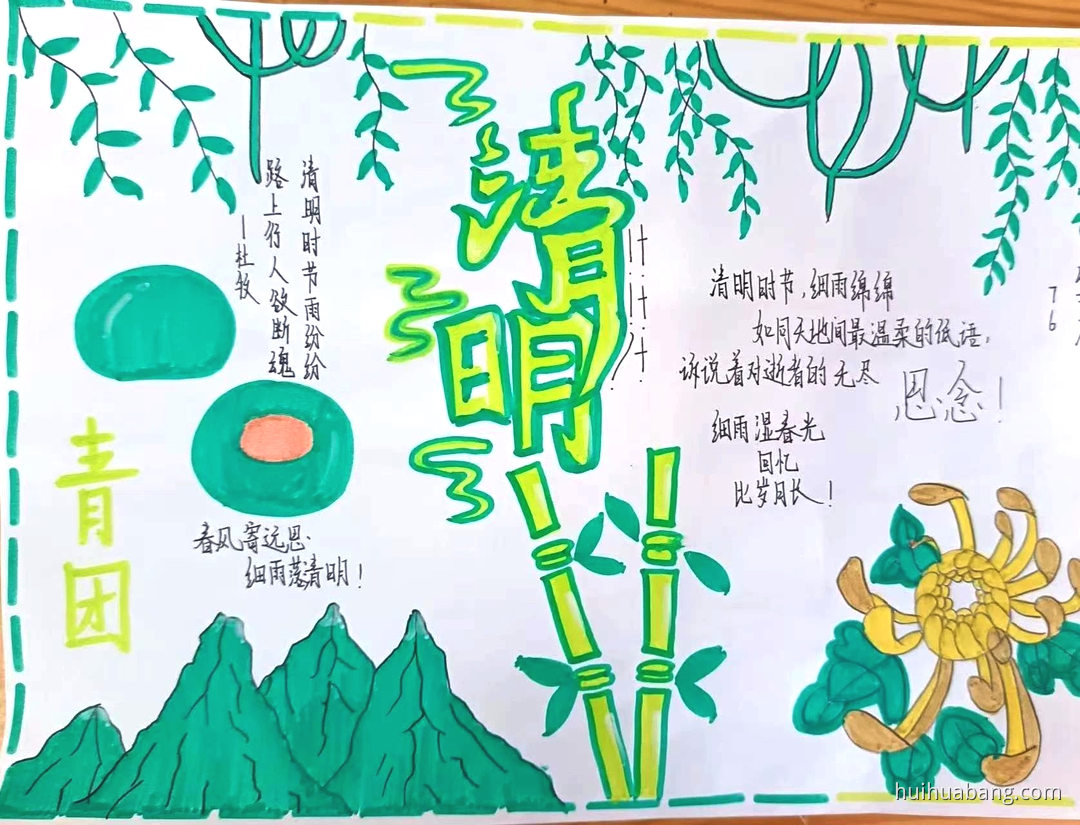 清明
清明时节雨纷纷
路上行人欲断魂
—杜牧
青团
春风寄远思.
细雨落清明!
清明时节,细雨绵绵
如同天地间最温柔的低语,
诉说着对逝者的无尽
思念!
细雨湿春光
回忆
比岁月长!
huihuabang.com